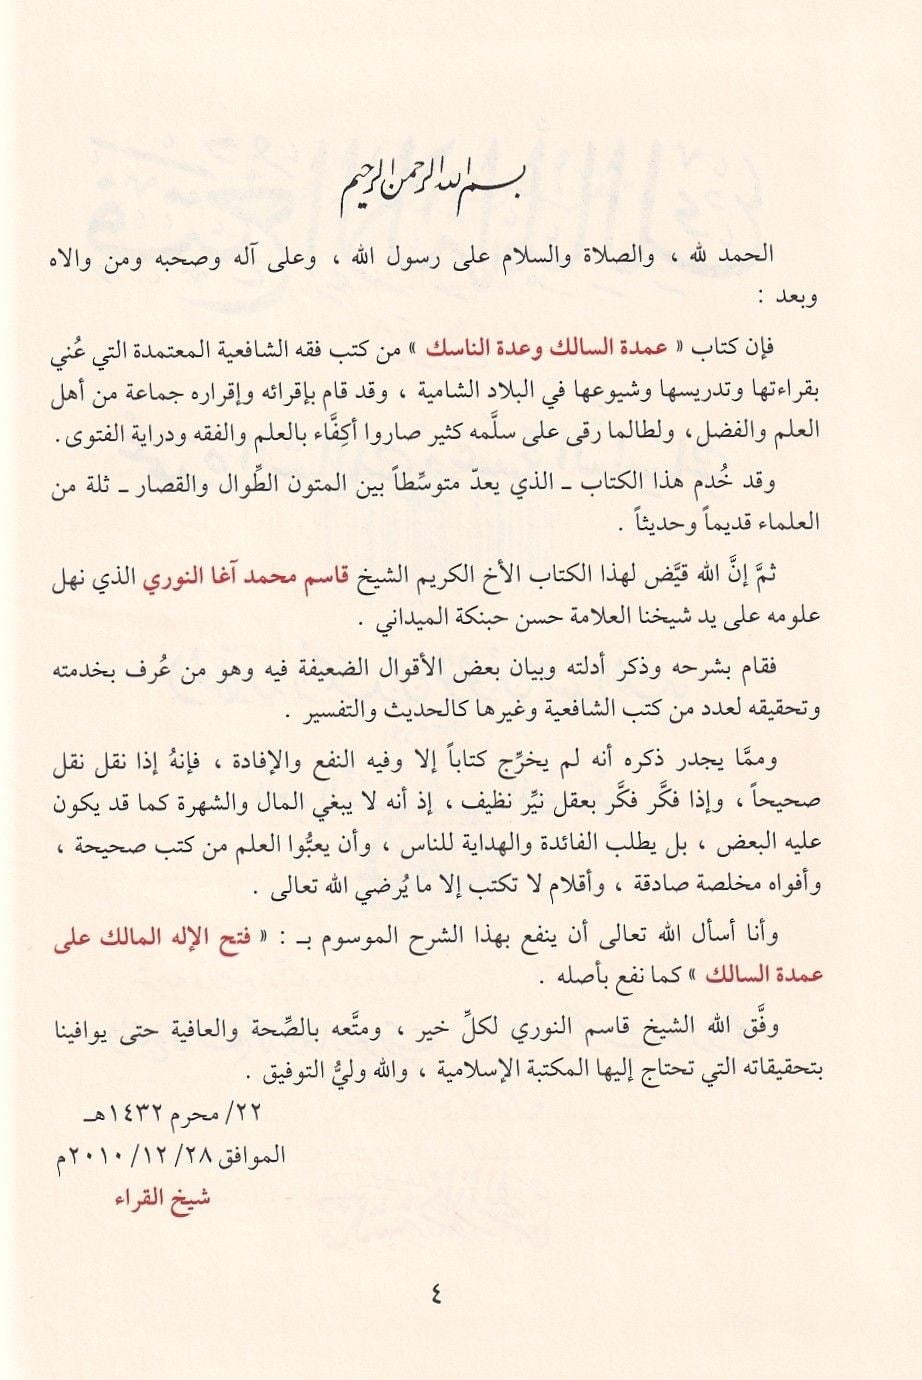 بسم الله الرحمن الرحيم
الحمد لله ، والصلاة والسلام على رسول الله ، وعلى آله وصحبه ومن والاه
وبعد :
فإن كتاب « عمدة السالك وعدة الناسك » من كتب فقه الشافعية المعتمدة التي عُني
بقراءتها وتدريسها وشيوعها في البلاد الشامية ، وقد قام بإقرائه وإقراره جماعة من أهل
العلم والفضل، ولطالما رقى على سلَّمه كثير صاروا أكِفَّاء بالعلم والفقه ودراية الفتوى.
وقد خُدم هذا الكتاب ـ الذي يعدّ متوسِّطاً بين المتون الطِّوال والقصار ـ ثلة من
العلماء قديماً وحديثاً .
ثمَّ إنَّ الله قيَّض لهذا الكتاب الأخ الكريم الشيخ قاسم محمد آغا النوري الذي نهل
علومه على يد شيخنا العلامة حسن حبنكة الميداني .
فقام بشرحه وذكر أدلته وبيان بعض الأقوال الضعيفة فيه وهو من عُرف بخدمته
وتحقيقه لعدد من كتب الشافعية وغيرها كالحديث والتفسير .
وممَّا يجدر ذكره أنه لم يخرِّج كتاباً إلا وفيه النفع والإفادة ، فإنهُ إذا نقل نقل
صحيحاً ، وإذا فكَّر فكَّر بعقل نيِّر نظيف ، إذ أنه لا يبغي المال والشهرة كما قد يكون
عليه البعض ، بل يطلب الفائدة والهداية للناس ، وأن يعبُّوا العلم من كتب صحيحة ،
وأفواه مخلصة صادقة ، وأقلام لا تكتب إلا ما يُرضي الله تعالى .
وأنا أسأل الله تعالى أن ينفع بهذا الشرح الموسوم بـ : « فتح الإله المالك على
عمدة السالك » كما نفع بأصله .
وفَّق الله الشيخ قاسم النوري لكلِّ خير ، ومتَّعه بالصِّحة والعافية حتى يوافينا
بتحقيقاته التي تحتاج إليها المكتبة الإسلامية ، والله وليُّ التوفيق .
٢٢/ محرم ١٤٣٢هـ
الموافق ٢٨/ ١٢/ ٢٠١٠م
شيخ القراء
٤